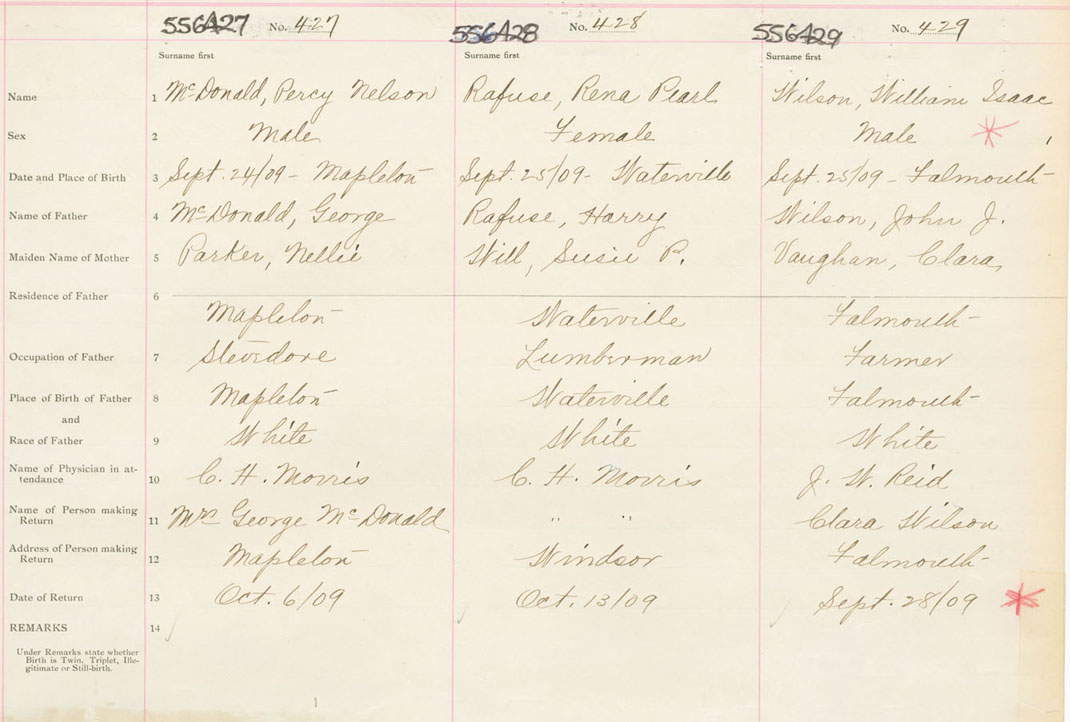 556427 No. 427 556428 No. 428 556429 No. 429
Surname first Surname first Surname first
Name 1 McDonald, Percy Nelson Rafuse, Rena Pearl Wilson, William Isaac
Sex 2 Male Female Male
Date and Place of Birth 3 Sept. 24/09 - Mapleton Sept. 25/09 - Waterville Sept. 25/09 - Falmouth
Name of Father 4 McDonald, George Rafuse, Harry Wilson, John J.
Maiden Name of Mother 5 Parker, Nellie Will, Susie P. Vaughan, Clara
Residence of Father 6
Mapleton Waterville Falmouth
Occupation of Father 7 Stevedore Lumberman Farmer
Place of Birth of Father 8 Mapleton Waterville Falmouth
and
Race of Father 9 White White White
Name of Physician in at-
tendance 10 C. H. Morris C. H. Morris J. W. Reid
Name of Person making
Return 11 Mrs George McDonald " " Clara Wilson
Address of Person making
Return 12 Mapleton Windsor Falmouth
Date of Return 13 Oct. 6/09 Oct. 13/09 Sept. 28/09
REMARKS 14
Under Remarks state whether
Birth is Twin. Triplet, Ille-
gitimate or Still-birth.